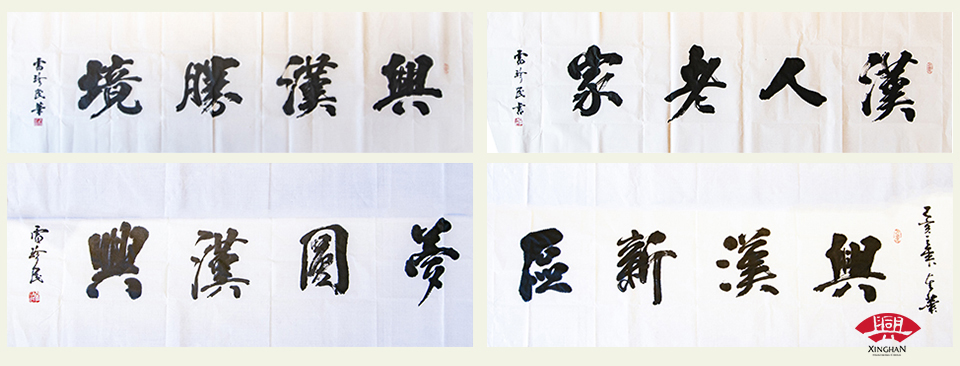 興漢勝境
雷珍民
漢人老家
雷珍民書
夢圓漢興
雷珍民
興漢新區
XINGHAN